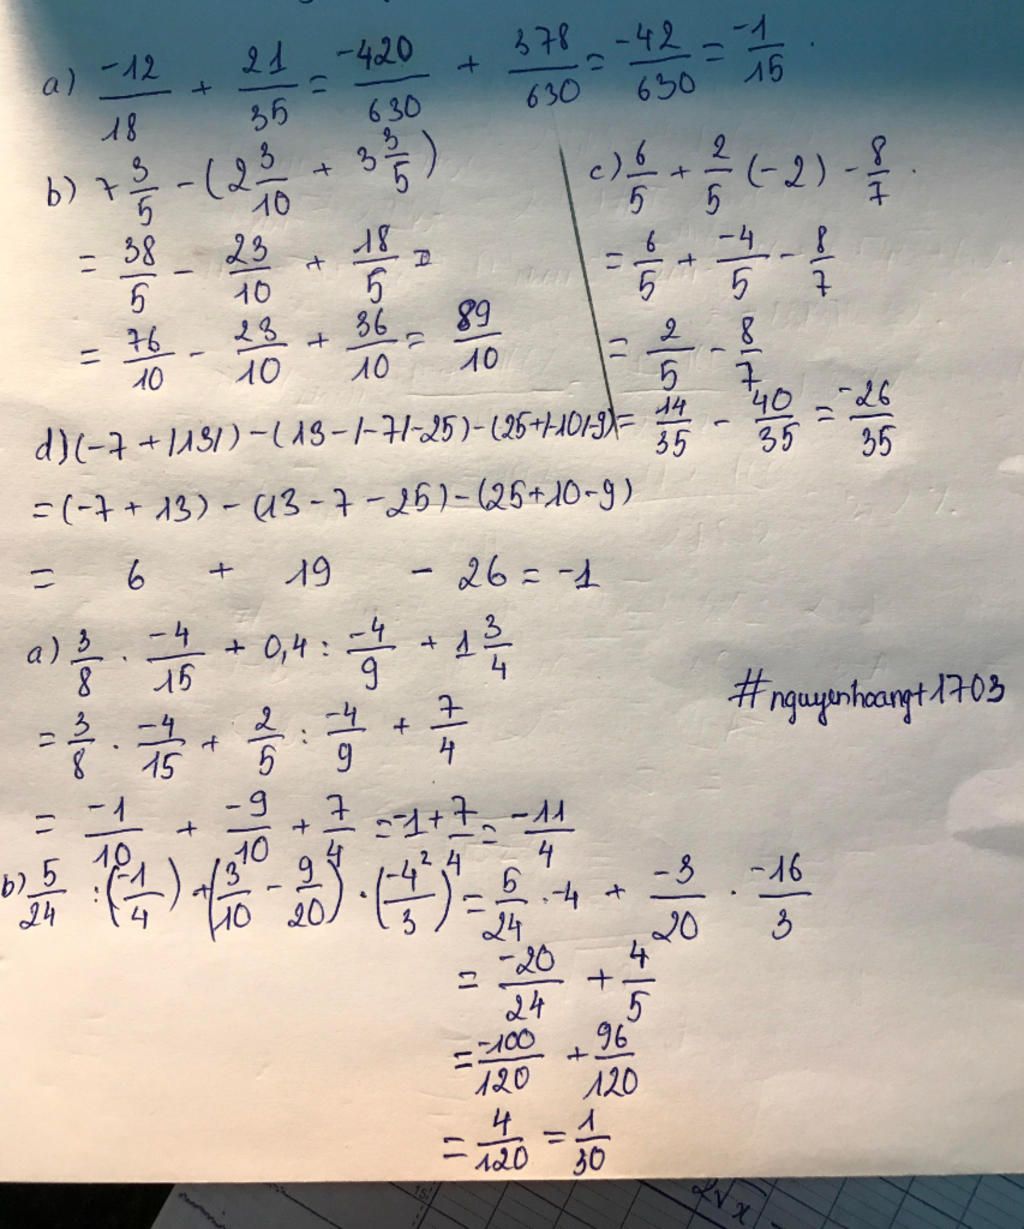 a) -12/18 + 21/35 = -420/630 + 378/630 = -42/630 = -1/15.
b) 7 3/5 - (2 3/10 + 3 3/5)
= 38/5 - 23/10 + 18/5 =
= 76/10 - 23/10 + 36/10 = 89/10
c) 6/5 + 2/5 (-2) - 8/7.
= 6/5 + -4/5 - 8/7
= 2/5 - 8/7
= 14/35 - 40/35 = -26/35
d) (-7 + |13|) - (13 - |-7| - 25) - (25 + |-10| - 9)
= (-7 + 13) - (13 - 7 - 25) - (25 + 10 - 9)
= 6 + 19 - 26 = -1
a) 3/8 . -4/15 + 0,4 : -4/9 + 1 3/4
= 3/8 . -4/15 + 2/5 : -4/9 + 7/4
= -1/10 + -9/10 + 7/4 = -1 + 7/4 = -11/4
#nguyenhoangt1703
b) 5/24 : (-1/4) + (3/10 - 9/20) . (-4²/3) = 5/24 . -4 + -3/20 . -16/3
= -20/24 + 4/5
= -100/120 + 96/120
= 4/120 = 1/30